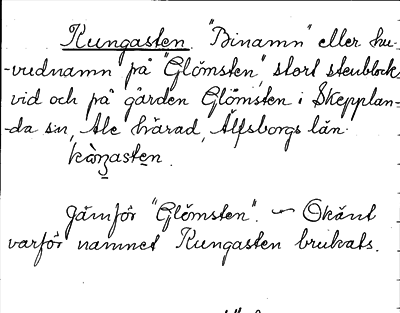 Kungasten. "Binamn" eller hu-
-vudnamn på "Glömsten", stort stenblock
vid och på gården Glömsten i Skepplan-
-da sn, Ale härad, Älfsborgs län.
Jämför "Glömsten". — Okänt
varför namnet Kungasten brukats.